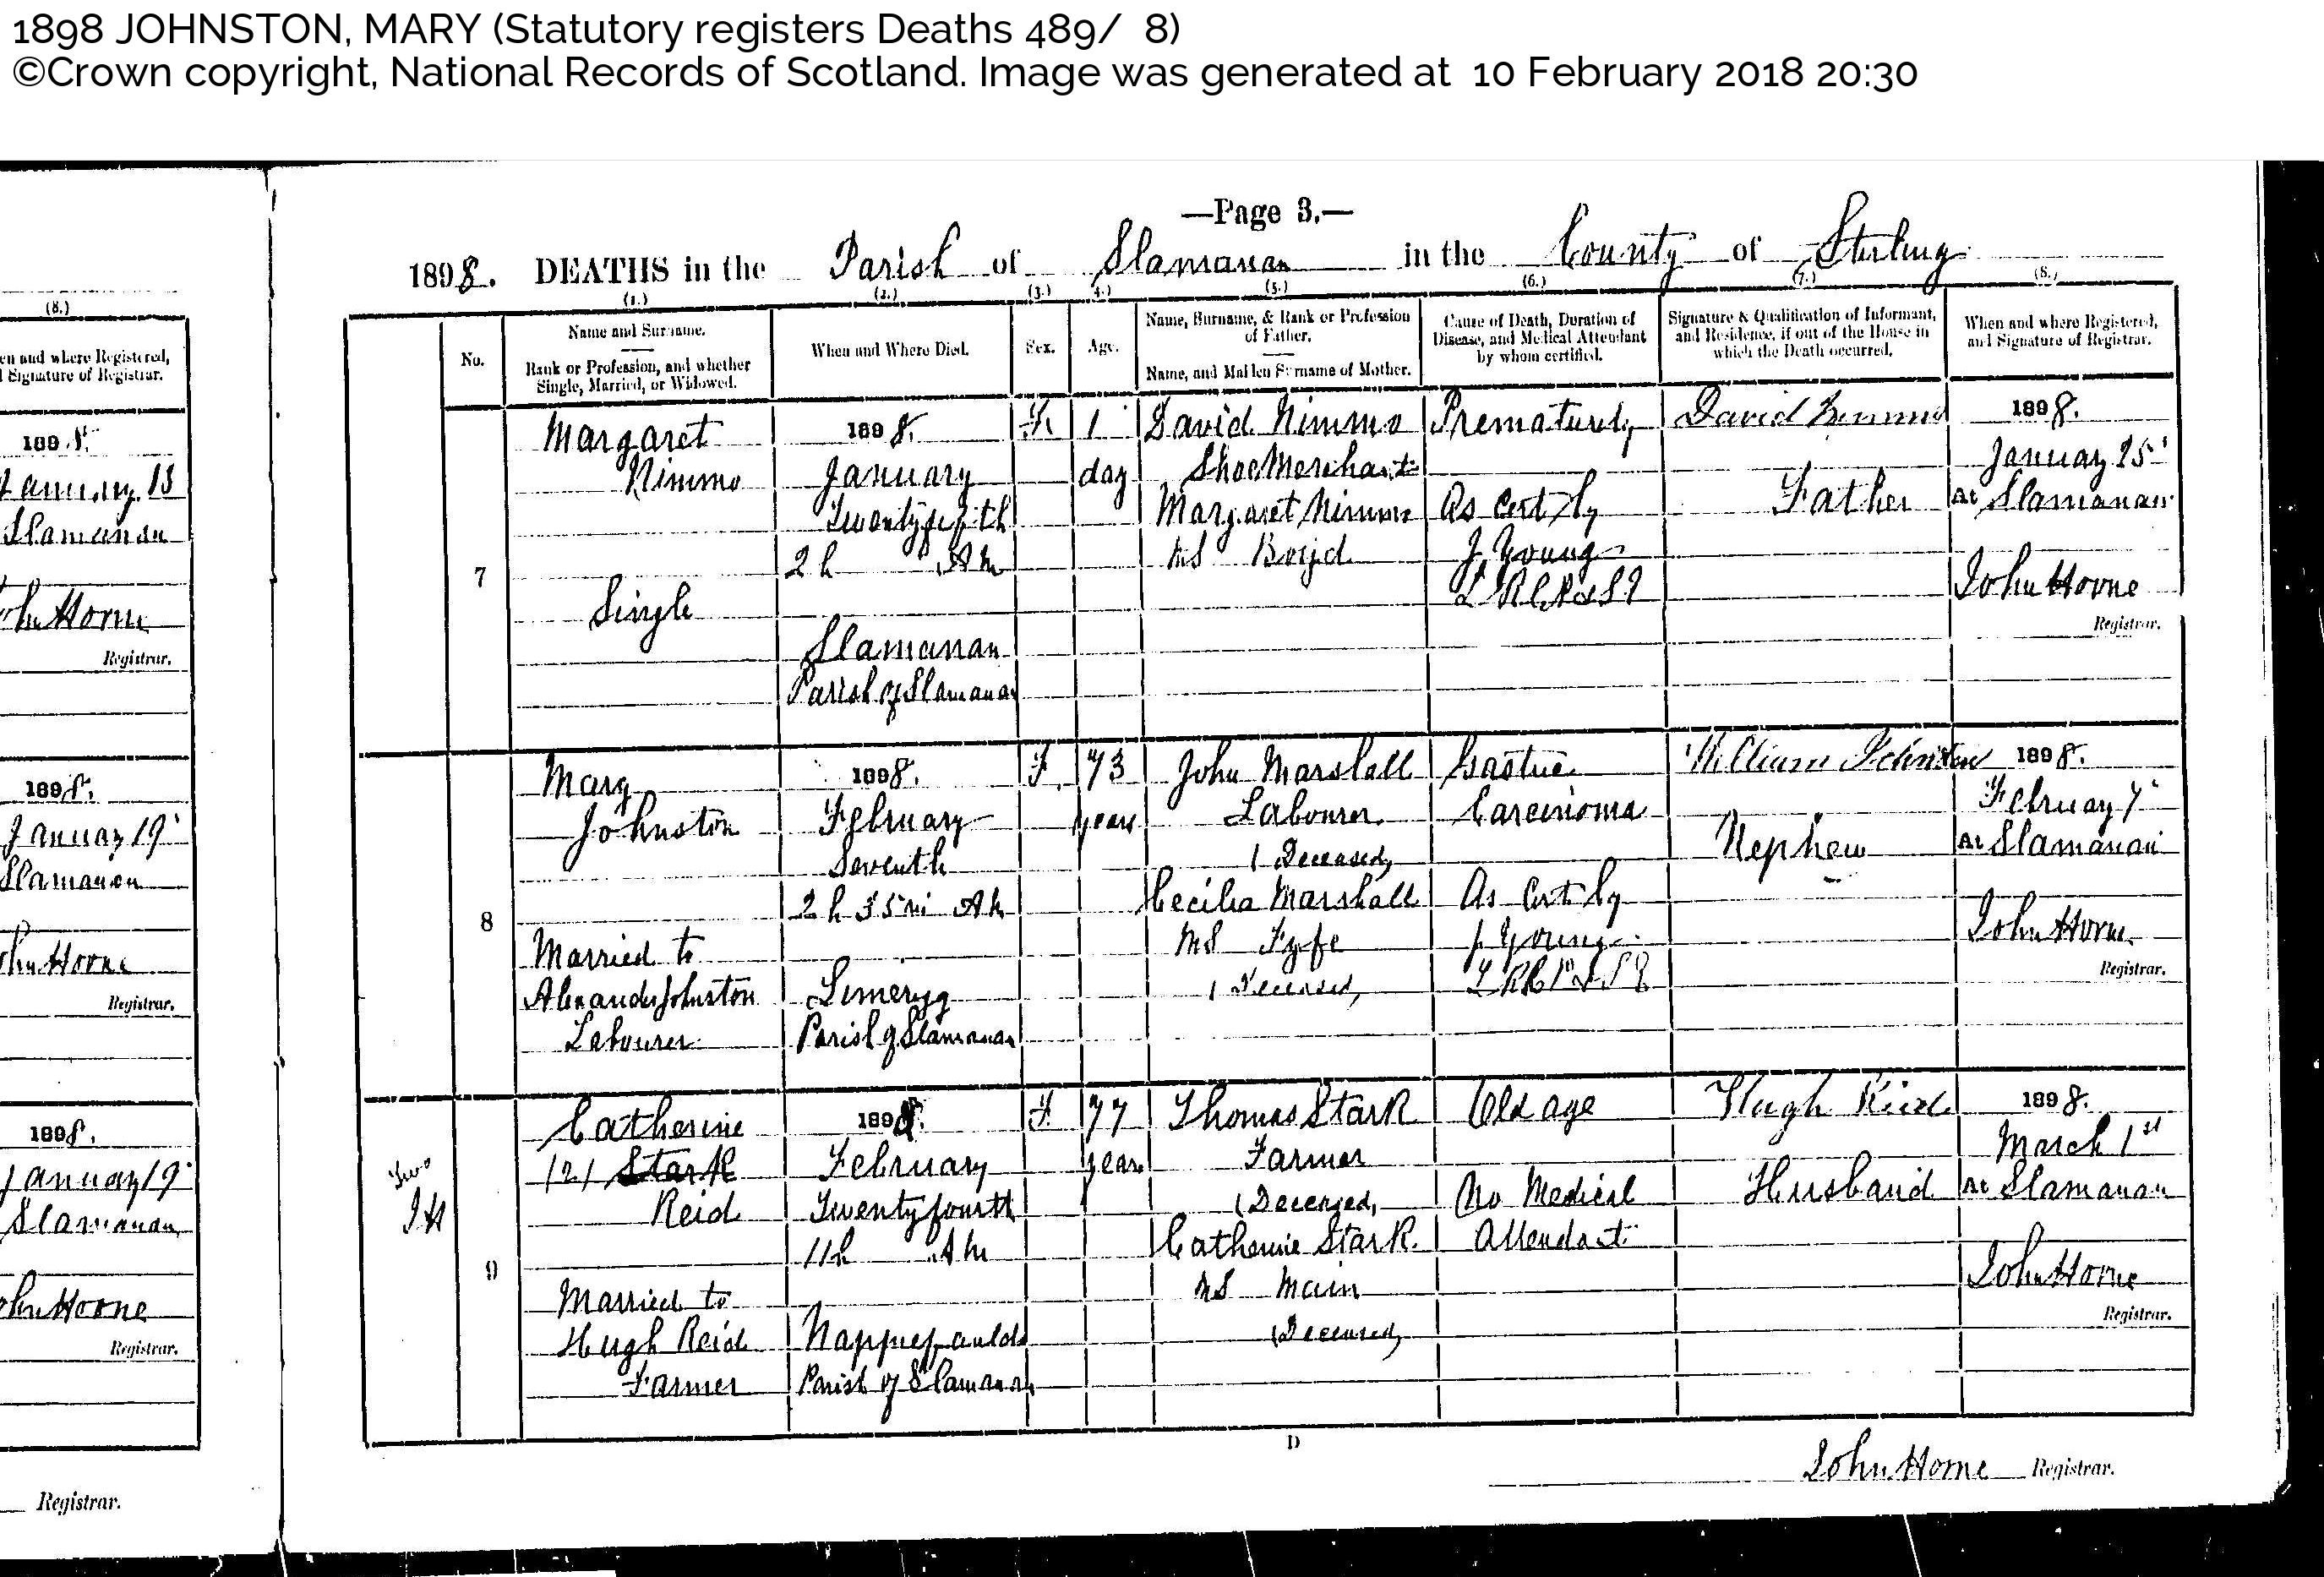 1898 JOHNSTON, MARY (Statutory registers Deaths 489/ 8)
©Crown copyright, National Records of Scotland. Image was generated at 10 February 2018 20:30
—Page 3.—
1898. DEATHS in the Parish of Slamanan in the County of Stirling
(1.) (2.) (3.) (4.) (5.) (6.) (7.) (8.)
No.
Name and Surname.
Rank or Profession, and whether
Single, Married, or Widowed.
When and Where Died.
Sex.
Age.
Name, Surname, & Rank or Profession
of Father.
Name, and Maiden Surname of Mother.
Cause of Death, Duration of
Disease, and Medical Attendant
by whom certified.
Signature & Qualification of Informant,
and Residence, if out of the House in
which the Death occurred.
When and where Registered,
and Signature of Registrar.
7
Margaret
Nimmo
Single
1898.
January
Twentyfifth
2 h AM
Slamanan
Parish of Slamanan
F.
1
day
David Nimmo
Shoe Merchant
Margaret Nimmo
MS Boyd
Prematurely
As Cert by
J Young
David Nimmo
Father
1898.
January 25
At Slamanan
John Horne
Registrar.
8
Mary
Johnston
Married to
Alexander Johnston
Labourer
1898.
February
Seventh
2 h 35 mi AM
Limerigg
Parish of Slamanan
F.
73
years
John Marshall
Labourer
(Deceased)
Cecilia Marshall
MS Fyfe
(Deceased)
Gastric
Carcinoma
As Cert by
J Young
William Johnston
Nephew
1898.
February 7
At Slamanan
John Horne
Registrar.
Two
JH
9
Catherine
(2) Stark
Reid
Married to
Hugh Reid
Farmer
1898.
February
Twentyfourth
11h AM
Nappiefaulds
Parish of Slamanan
F.
77
years
Thomas Stark
Farmer
(Deceased)
Catherine Stark
MS Main
(Deceased)
Old age
No Medical
Attendant
Hugh Reid
Husband
1898.
March 1st
At Slamanan
John Horne
Registrar.
D
John Horne Registrar.
(8.)
en and where Registered,
Signature of Registrar.
189
January 13
Slamanan
John Horne
Registrar.
1898.
January 19
Slamanan
John Horne
Registrar.
1898.
January 19
Slamanan
John Horne
Registrar.
Registrar.